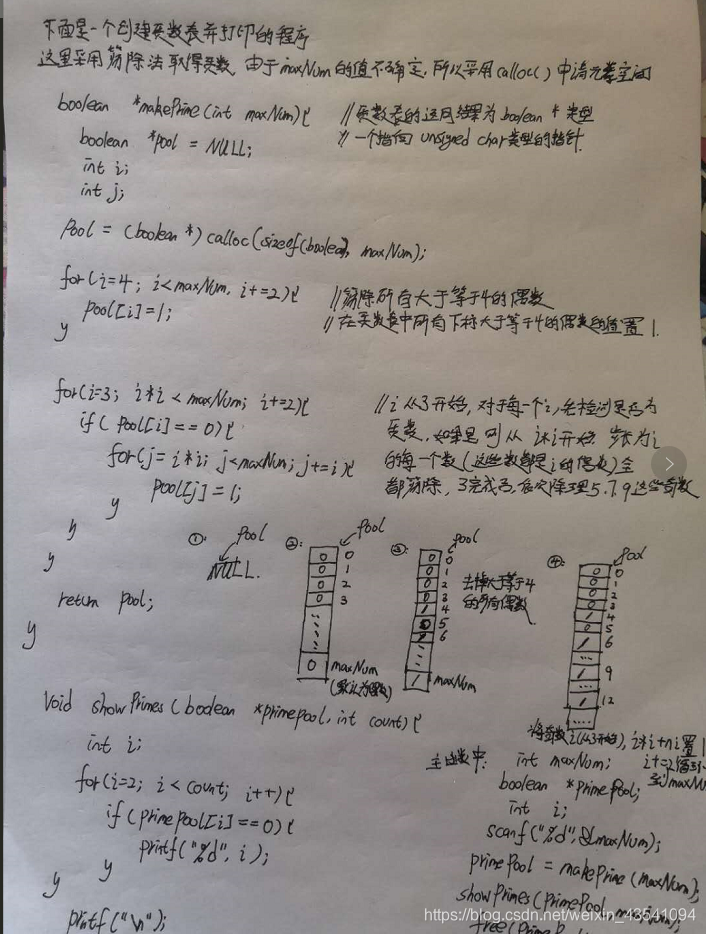 下面是一个创建质数表并打印的程序
这里采用筛除法取得质数,由于maxNum的值不确定,所以采用calloc()申请元素空间
boolean *makePrime(int maxNum){ //质数表的返回结果为boolean *类型
boolean *pool = NULL; //一个指向 unsigned char类型的指针.
int i;
int j;
pool = (boolean *) calloc(sizeof(boolean), maxNum);
for(i=4; i<maxNum; i+=2){ //筛除所有大于等于4的偶数
pool[i]=1; //在质数表中所有下标大于等于4的偶数的值置1.
}
for(i=3; i*i < maxNum; i+=2){ //i从3开始,对于每一个i,先检测是否为
if( pool[i]==0){ 质数,如果是,则从 i*i开始 步长为i
for(j= i*i; j<maxNum; j+=i){ 的每一个数(这些数都是i的倍数)全
pool[j]=1; 都筛除,3完成后,依次处理5.7.9这些奇数
}
}
}
return pool;
}
①: pool
NULL.
②: pool
0 0
0 1
0 2
0 3
0 maxNum
(默认为质数)
③: pool
0 0
0 1
0 2
0 3
1 4
0 5
1 6
1 maxNum
去掉大于等于4
的所有偶数
④: pool
0 0
0 1
0 2
0 3
1 4
0 5
1 6
1 9
1 12
将奇数i(从3开始), i*i+ni置1
void showPrimes(boolean *primePool, int count){
int i;
for(i=2; i < count; i++){
if(primePool[i]==0){
printf("%d", i);
}
}
printf("\n");
主函数中: int maxNum;
boolean *primePool;
int i;
scanf("%d",&maxNum);
primePool = makePrime(maxNum);
showPrimes(primePool, maxNum);
free(primeP
https://blog.csdn.net/weixin_43541094